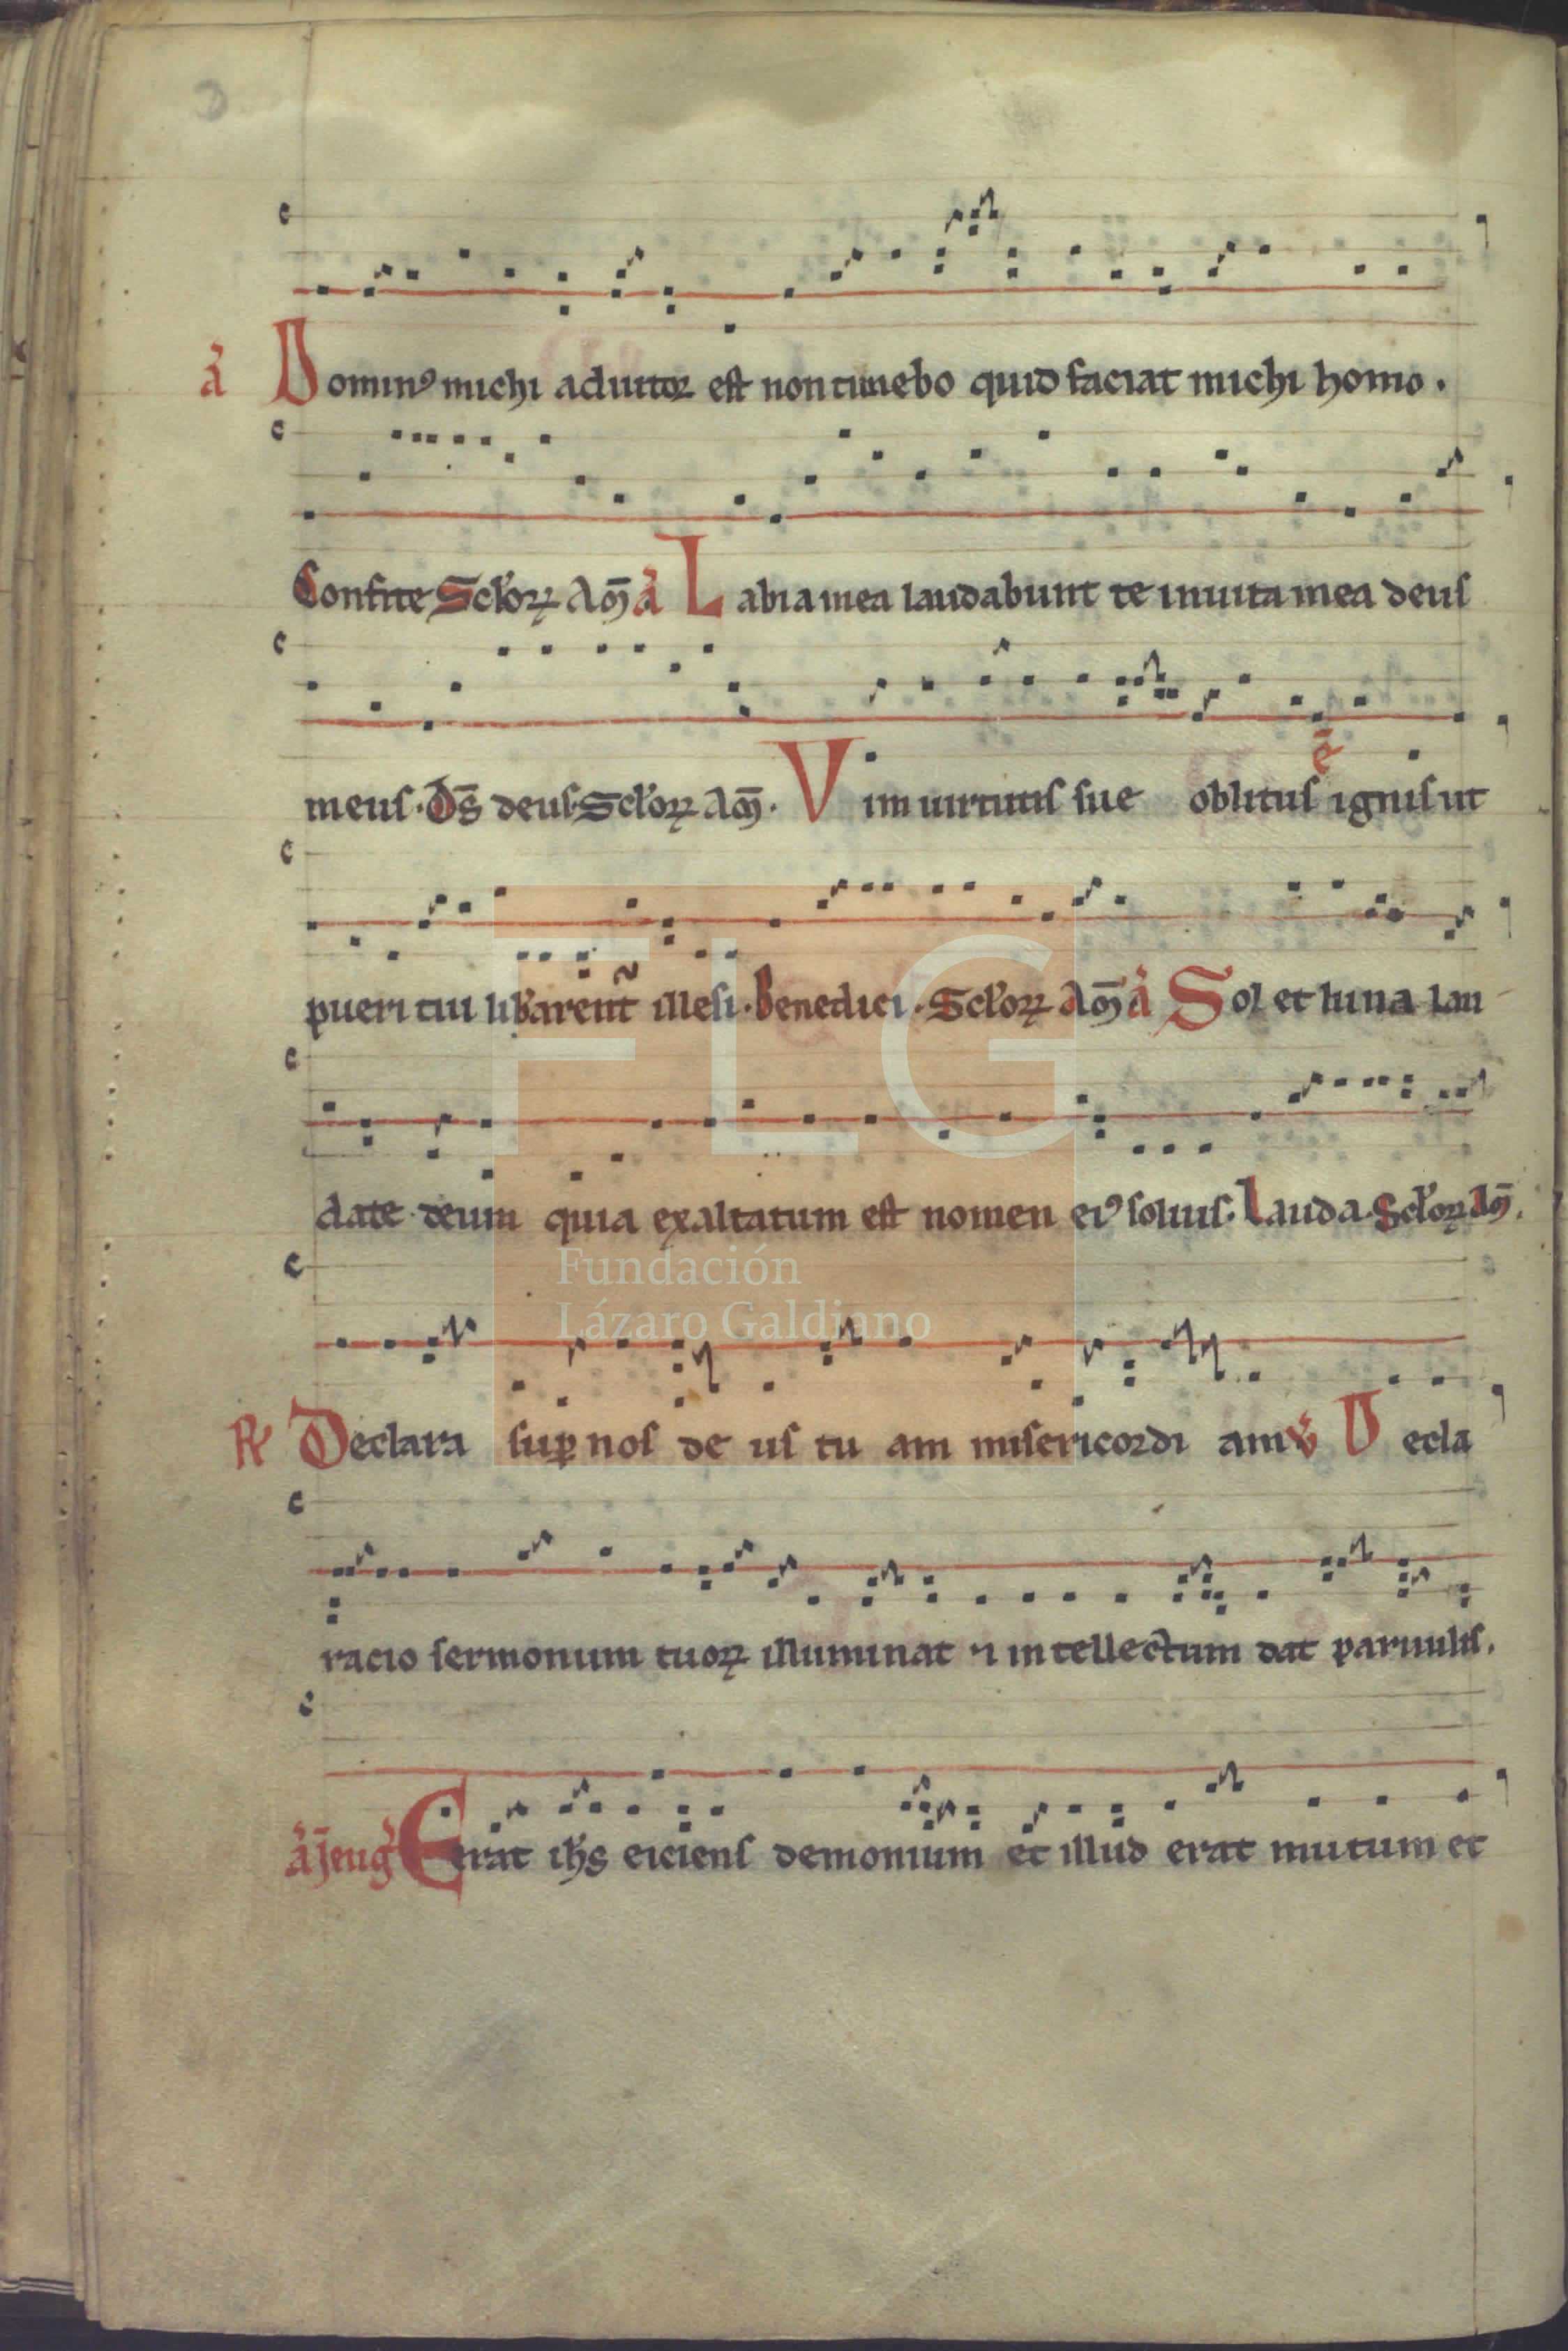 a Dominꝰ michi adiutor est non timebo quid faciat michi homo.
Confite Sclorꝝ Am̄ a Labia mea laudabunt te in uita mea deus
meus. Ds̄ deus. Sclorꝝ Am̄. Vim uirtutis sue oblitus ignis ut
pueri tui lib̓arent̃ illesi. Benedici. Sclorꝝ Am̄ a Sol et luna lau
date deum quia exaltatum est nomen eiꝰ solius. Lauda. Sclorꝝ Am̄.
Fundación
Lázaro Galdiano
FLG
℟ Declara suꝑ nos de us tu am misericordi am ℣ Decla
racio sermonum tuorꝝ illuminat ⁊ intellectum dat paruulis.
a Jeug̓ Erat ih̄s eiciens demonium et illud erat mutum et